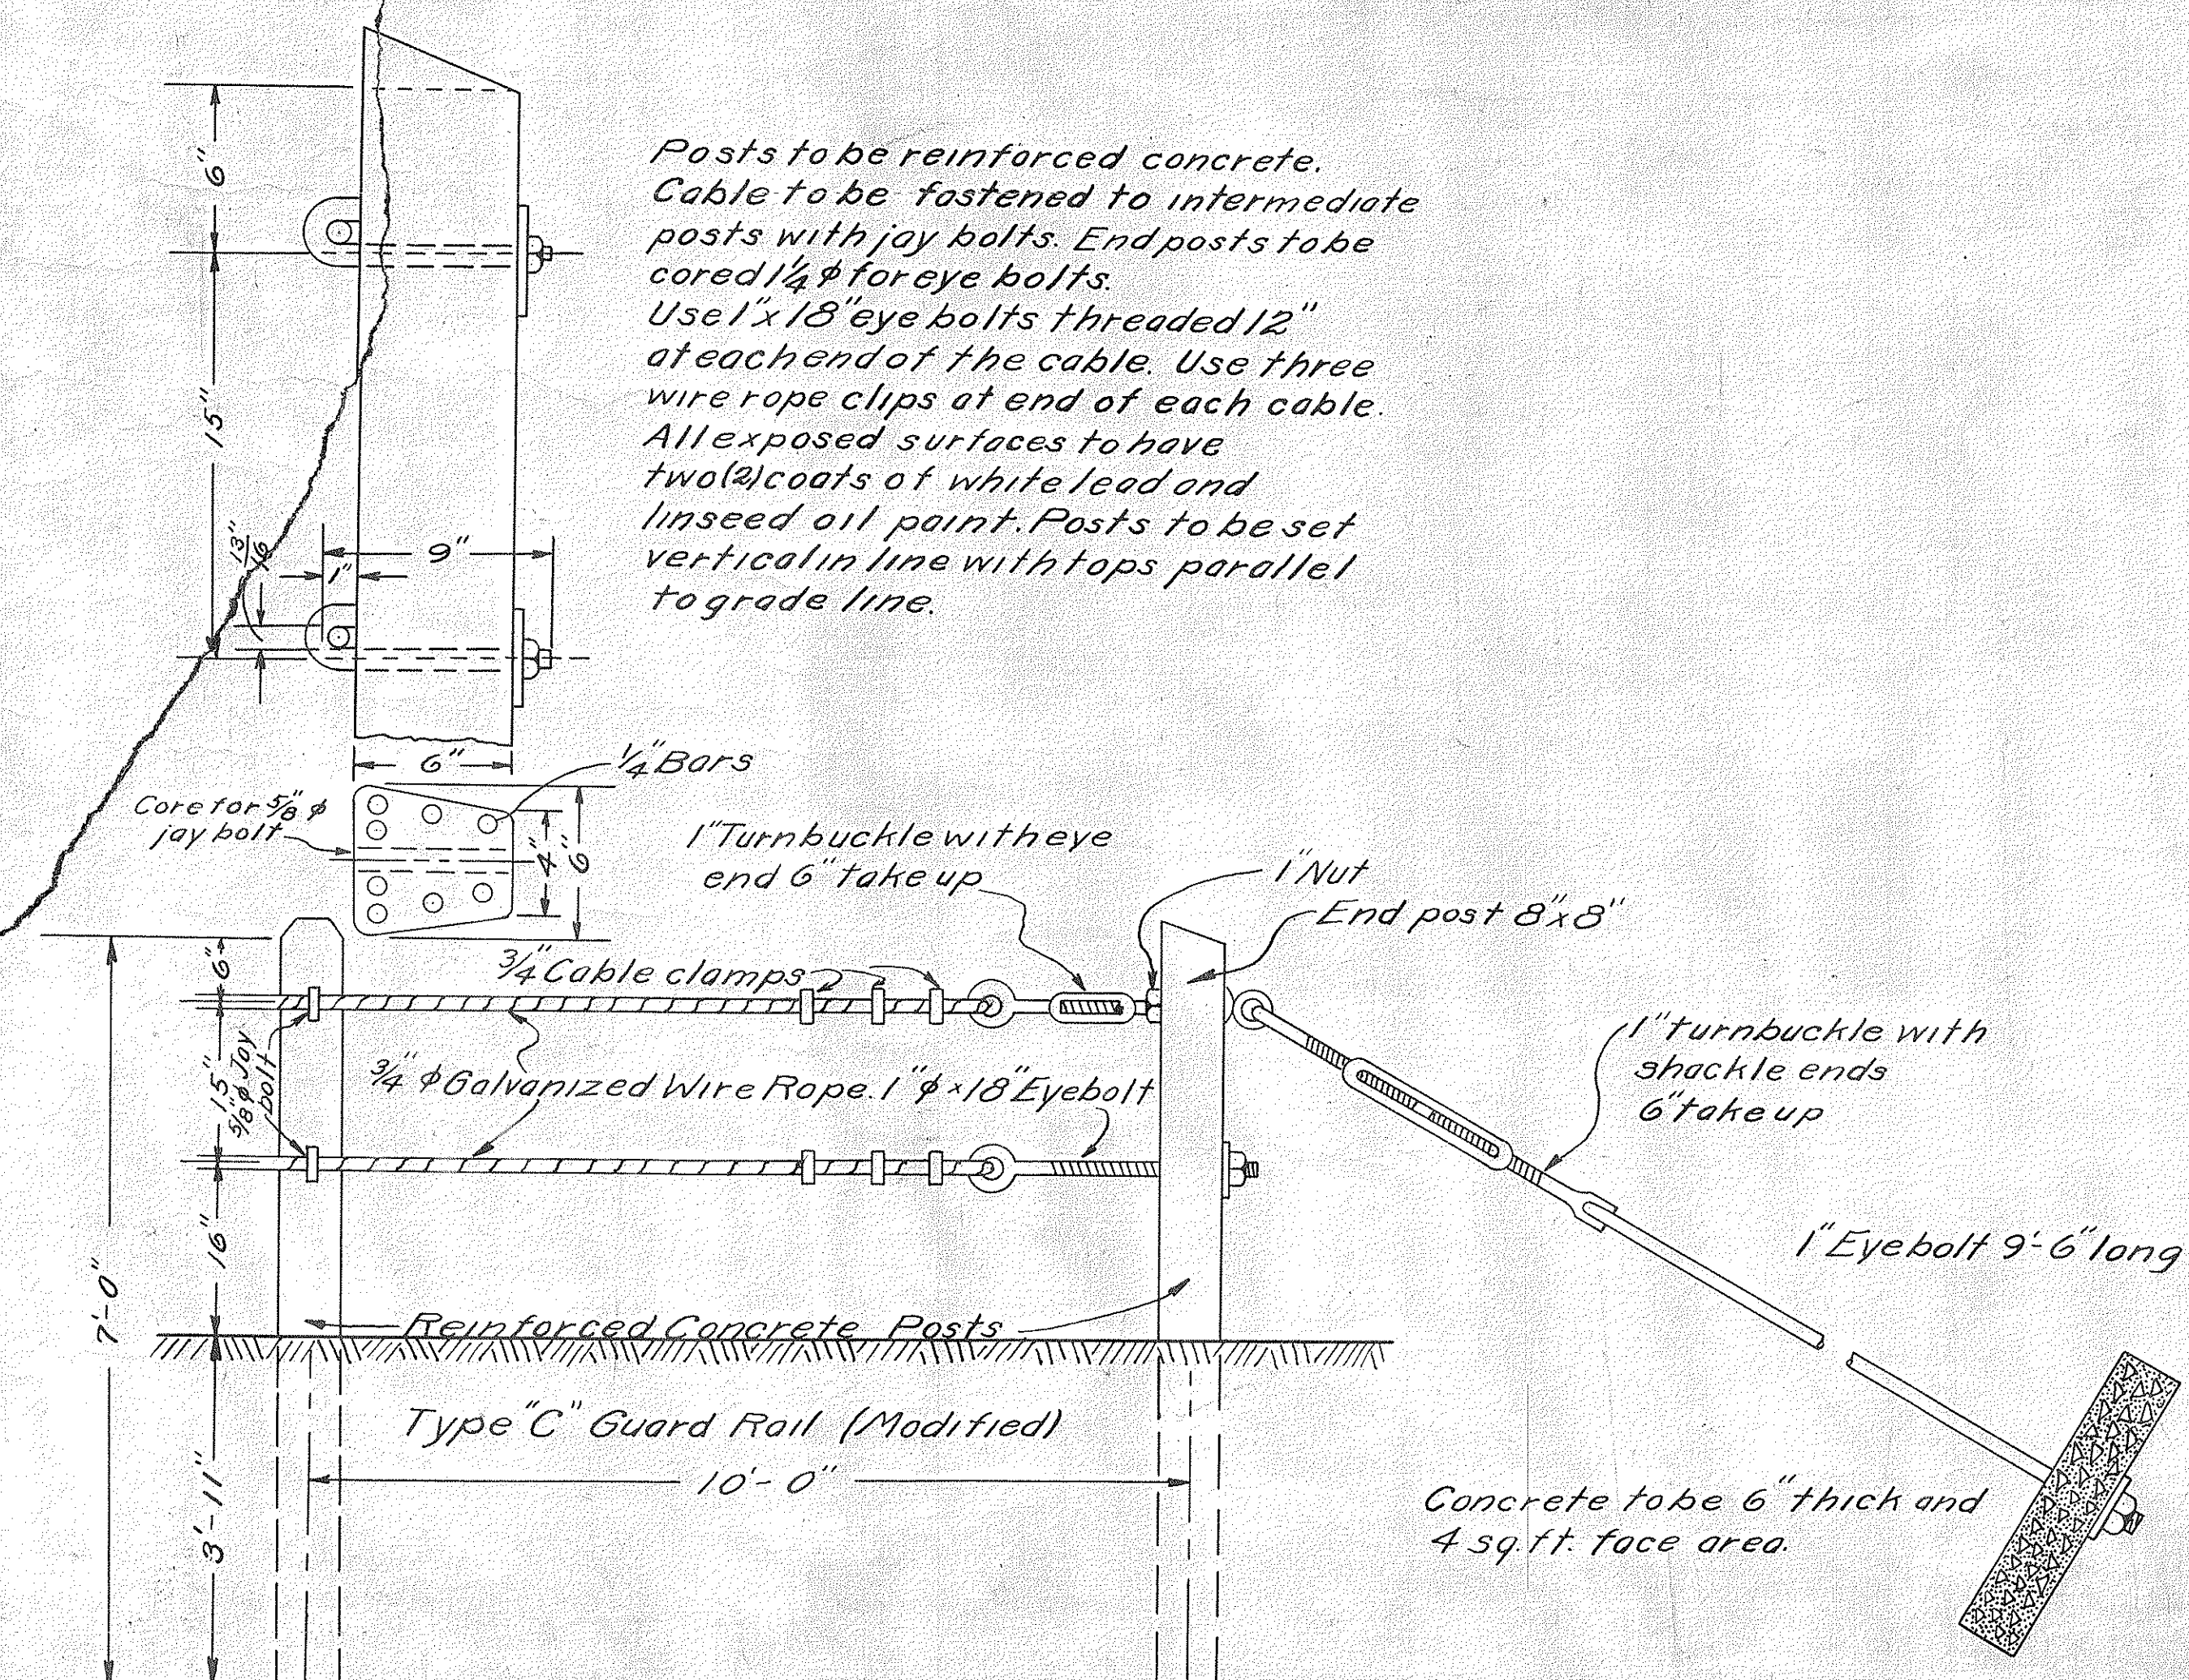 6"
15"
13"
16
9"
1"
6"
Posts to be reinforced concrete.
Cable to be fastened to intermediate
posts with jay bolts. End posts to be
cored 1¼ φ for eye bolts.
Use 1"x 18" eye bolts threaded 12"
at each end of the cable. Use three
wire rope clips at end of each cable.
All exposed surfaces to have
two (2) coats of white lead and
linseed oil paint. Posts to be set
vertical in line with tops parallel
to grade line.
¼" Bars
Core for ⅝" φ
jay bolt
4"
6"
1" Turnbuckle with eye
end 6" take up
1" Nut
End post 8"x 8"
¾" Cable clamps
6"
15"
⅝" φ Jay
bolt
¾" φ Galvanized Wire Rope. 1" φ x 18" Eyebolt
1" turnbuckle with
shackle ends
6" take up
16"
7'-0"
1" Eyebolt 9'-6" long
Reinforced Concrete Posts
Type "C" Guard Rail (Modified)
10'-0"
3'-11"
Concrete to be 6" thick and
4 sq. ft. face area.